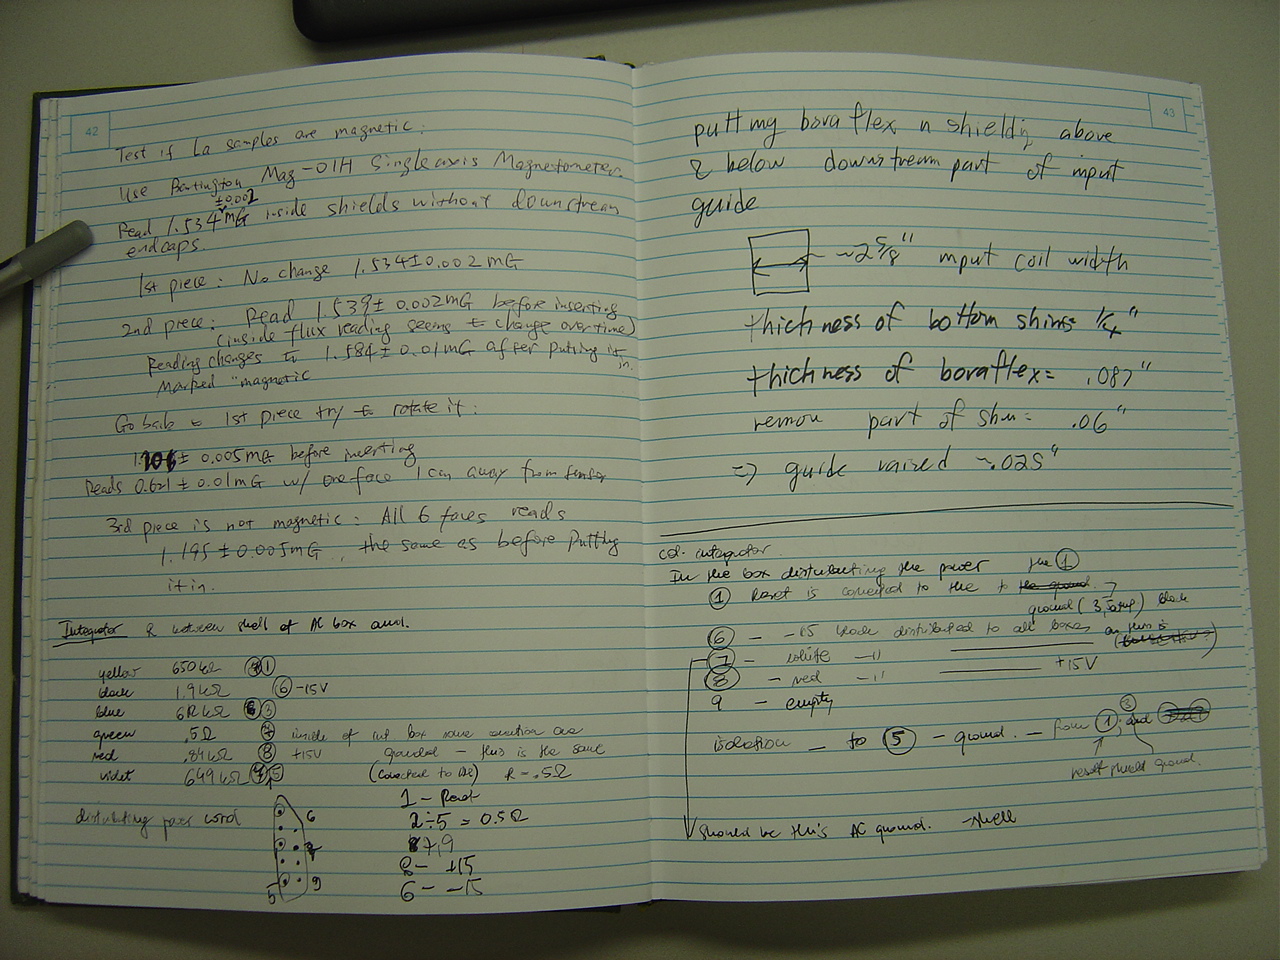 42
Test if La samples are magnetic:
Use Bartington Mag-01H Single axis Magnetometer
±0.002
Read 1.534 mG inside shields without downstream
endcaps
1st piece: No change 1.534±0.002 mG
2nd piece: Read 1.539± 0.002mG before inserting
(inside flux reading seems to change over time)
Reading changes to 1.584± 0.01mG after putting it in.
Marked "magnetic
Go back to 1st piece try to rotate it:
1.106± 0.005mG before inserting
Reads 0.621± 0.01mG w/ one face 1 cm away from sensor
3rd piece is not magnetic: All 6 faces reads
1.195±0.005mG, the same as before putting
it in.
Integrator R between shell of AC box and.
yellow 650kΩ 1
black 1.9kΩ 6 -15V
blue kΩ 3
green .5Ω inside of box some are
red .84kΩ 8 +15V grounded - this is the same
violet 649kΩ 5 (connected to ) R=.5Ω
distributing power cord
6
5 9
1 - Reset
2÷5 = 0.5Ω
7,9
8- +15
6- -15
43
putting boraflex n shieldig above
& below downstream part of input
guide
~2 5/8" input coil width
thickness of bottom shims 1/4"
thickness of boraflex= .087"
remove part of shim= .06"
=> guide raised ~.025"
integrator
In the box distributing the power the 1
1 Reset is connected to the to the ground.
ground (3, ) black
6 - -15 black distributed to all boxes this is
7 - white -11
8 - red -11 +15V
9 - empty
isolation - to 5 - ground. - from 1, 3 and
result shield ground.
should be this AC ground. - shell